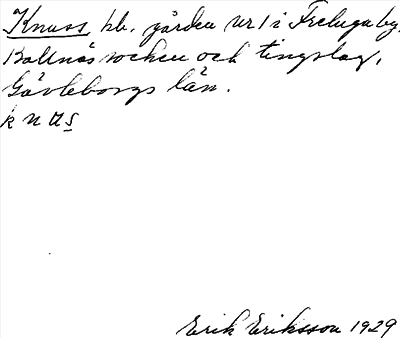 Knuss, hb. gården nr 1 i Freluga by,
Bollnäs socken och tingslag,
Gävleborgs län.
k n ʉ s
Erik Eriksson 1929